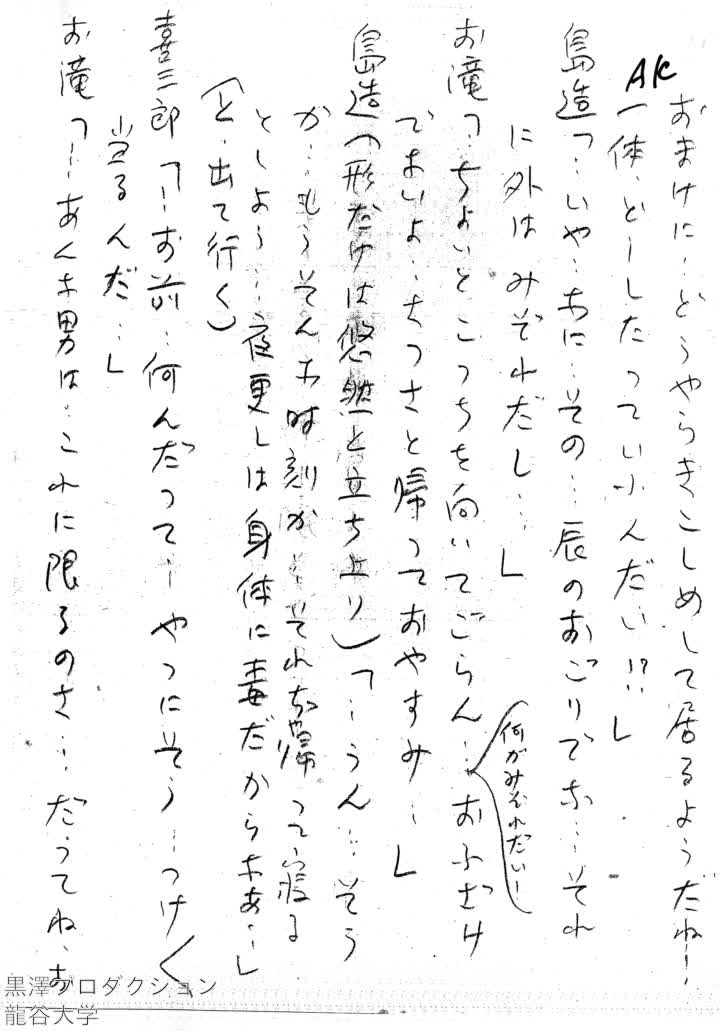 おまけに…どうやらきこしめして居るようだねー
AK
一体、どーしたってい小んだい!?…」
島造「…いや…なに…その…辰のおごりでな…それ
に外はみぞれだし…」
お滝「…ちょいとこっちを向いてごらん…おふざけ
何がみぞれだいー
でないよ…さっさと帰っておやすみ…」
島造(形だけは悠然と立ち上り)「…うん…そう
か…もうそんな時刻か…それぢゃ帰って寝る
としよう…夜更しは身体に毒だからなあ…」
(と、出て行く)
喜三郎「…お前…何んだって…やつにそう…つけ〱
当るんだ…」
お滝「…あんな男は…これに限るのさ…だってね、お
黒澤プロダクション
龍谷大学